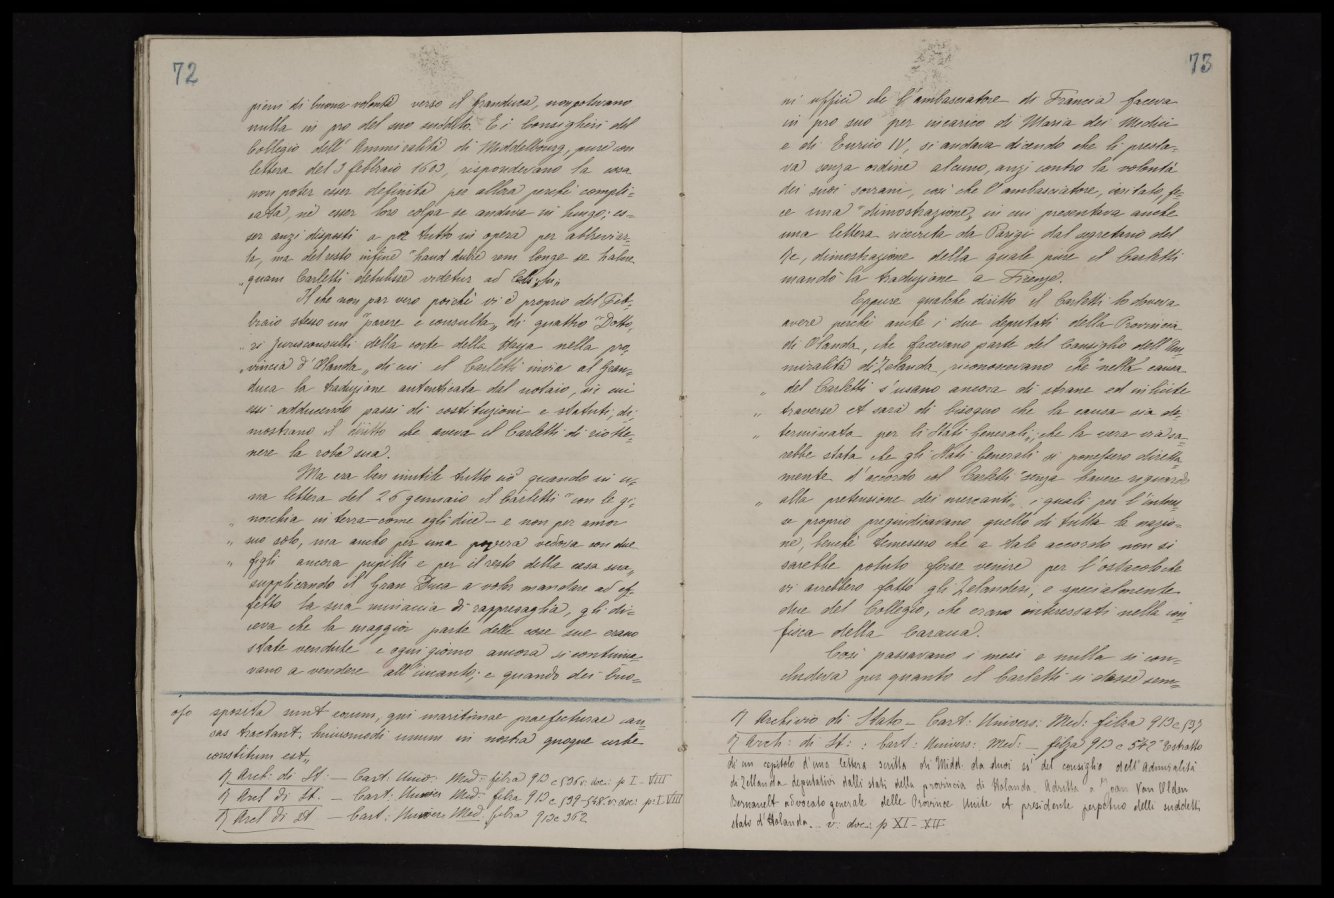 72
pieni di buona volontà verso il Granduca, non potevano
nulla in pro del suo suddito. E i Consiglieri del
Collegio dell' Ammiralità di Middelbourg, pure con
lettera del 3 febbraio 1603, rispondevano la cosa
non poter esser definita per allora perchè compli=
cata, nè esser loro colpa se andava in lungo; es=
ser anzi disposti a por tutto in opera per abbreviar=
la, ma del resto infine "haud dubie rem longe se habere
„quam Carletti detulisse videtur ad
Il che non par vero poichè vi è proprio del Feb=
braio stesso un "parere e consulta„ di quattro "Dotto„
„ri Jurisconsulti della corte della Haya nella pro„
„vincia d'Olanda„ di cui il Carletti invia al Gran=
duca la traduzione autenticata dal notaio, in cui
essi adducendo passi di costituzioni e statuti, di=
mostrano il diritto che aveva il Carletti di riotte=
nere la roba sua.
Ma era ben inutile tutto ciò quando in u=
na lettera del 26 gennaio il Carletti "con le gi„
„ nocchia in terra - come egli dice - e non per amor
„ suo solo, ma anche per una povera vedova con due
„ figli ancora pupilli e per il resto della casa sua„
supplicando il Gran Duca a voler mandare ad ef=
fetto la sua minaccia di rappresaglia, gli di=
ceva che la maggior parte delle cose sue erano
state vendute e ogni giorno ancora si continua=
vano a vendere all'incanto; e quando dei buo=
sposita sunt eorum, qui maritimae praefecturae cau=
sas tractant. huiusmodi unum in nostra quoque urbe
constitum est„
1) Arch: di St: - Cart: Univ: Med: filza 913 c 536 v: doc: p I - VIII
2) Arch di St. - Cart: Univer: Med: filza 913 c 539-548. v: doc: p: I - VIII
3) Arch di St - Cart: Univer: Med: filza 913 c 362
73
ni uffici che l'ambasciatore di Francia faceva
in pro suo per incarico di Maria dei Medici
e di Enrico IV, si andava dicendo che li presta=
va senza ordine alcuno, anzi contro la volontà
dei suoi sovrani, così che l'ambasciatore, irritato, fe=
ce una "dimostrazione„ in cui presentava anche
una lettera ricevuta da Parigi dal segretario del
Re, dimostrazione della quale pure il Carletti
mandò la traduzione a Firenze.
Eppure qualche diritto il Carletti lo doveva
avere perchè anche i due deputati della Provincia
di Olanda, che facevano parte del Consiglio dell'Am=
miralità di Zelanda, riconoscevano che "nella causa
„ del Carletti s'usano ancora di strane ed inlicite
„ traverse et sarà di bisogno che la causa sia de=
„ terminata per li Stati Generali„; che la vera via sa=
rebbe stata che gli Stati Generali si ponessero diretta=
mente d'accordo col Carletti "senza havere riguardo
„ alla pretensione dei mercanti„, i quali per l'interes=
se proprio pregiudicavano quello di tutta la nazio=
ne, benchè temessero che a tale accordo non si
sarebbe potuto forse venire per l'ostacolo che
vi avrebbero fatto gli Zelandesi, e specialmente
due del Collegio, che erano interessati nella con=
fisca della Caracca.
Così passavano i mesi e nulla si con=
cludeva per quanto il Carletti si desse sem=
1) Archivio di Stato - Cart: Univers: Med: filza 913 c 537
2) Arch: di St: : Cart: Univers: Med: - filza 913 c 542 "Estratto
di un capitolo d'una lettera scritta di Midd. da duoi si' dei consiglio dell'Admiralità
di Zellanda deputativi dalli stati della provincia di Holanda. Adritta a Jean Van Olden
Bernavelt advocato generale delle Province Unite et presidente perpetuo delli suddetti
stato d'Holanda„. v: doc: p XI - XII